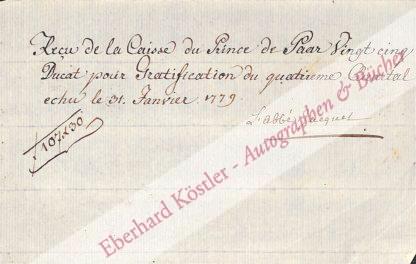 Recu de la Caisse du Prince de Paar Vingt cinq
Ducat pour Gratification du quatrieme Quartal
echu le 31. Janvier 1779.
L'abbé Jacquet
107x30
Eberhard Köstler - Autographen & Bücher